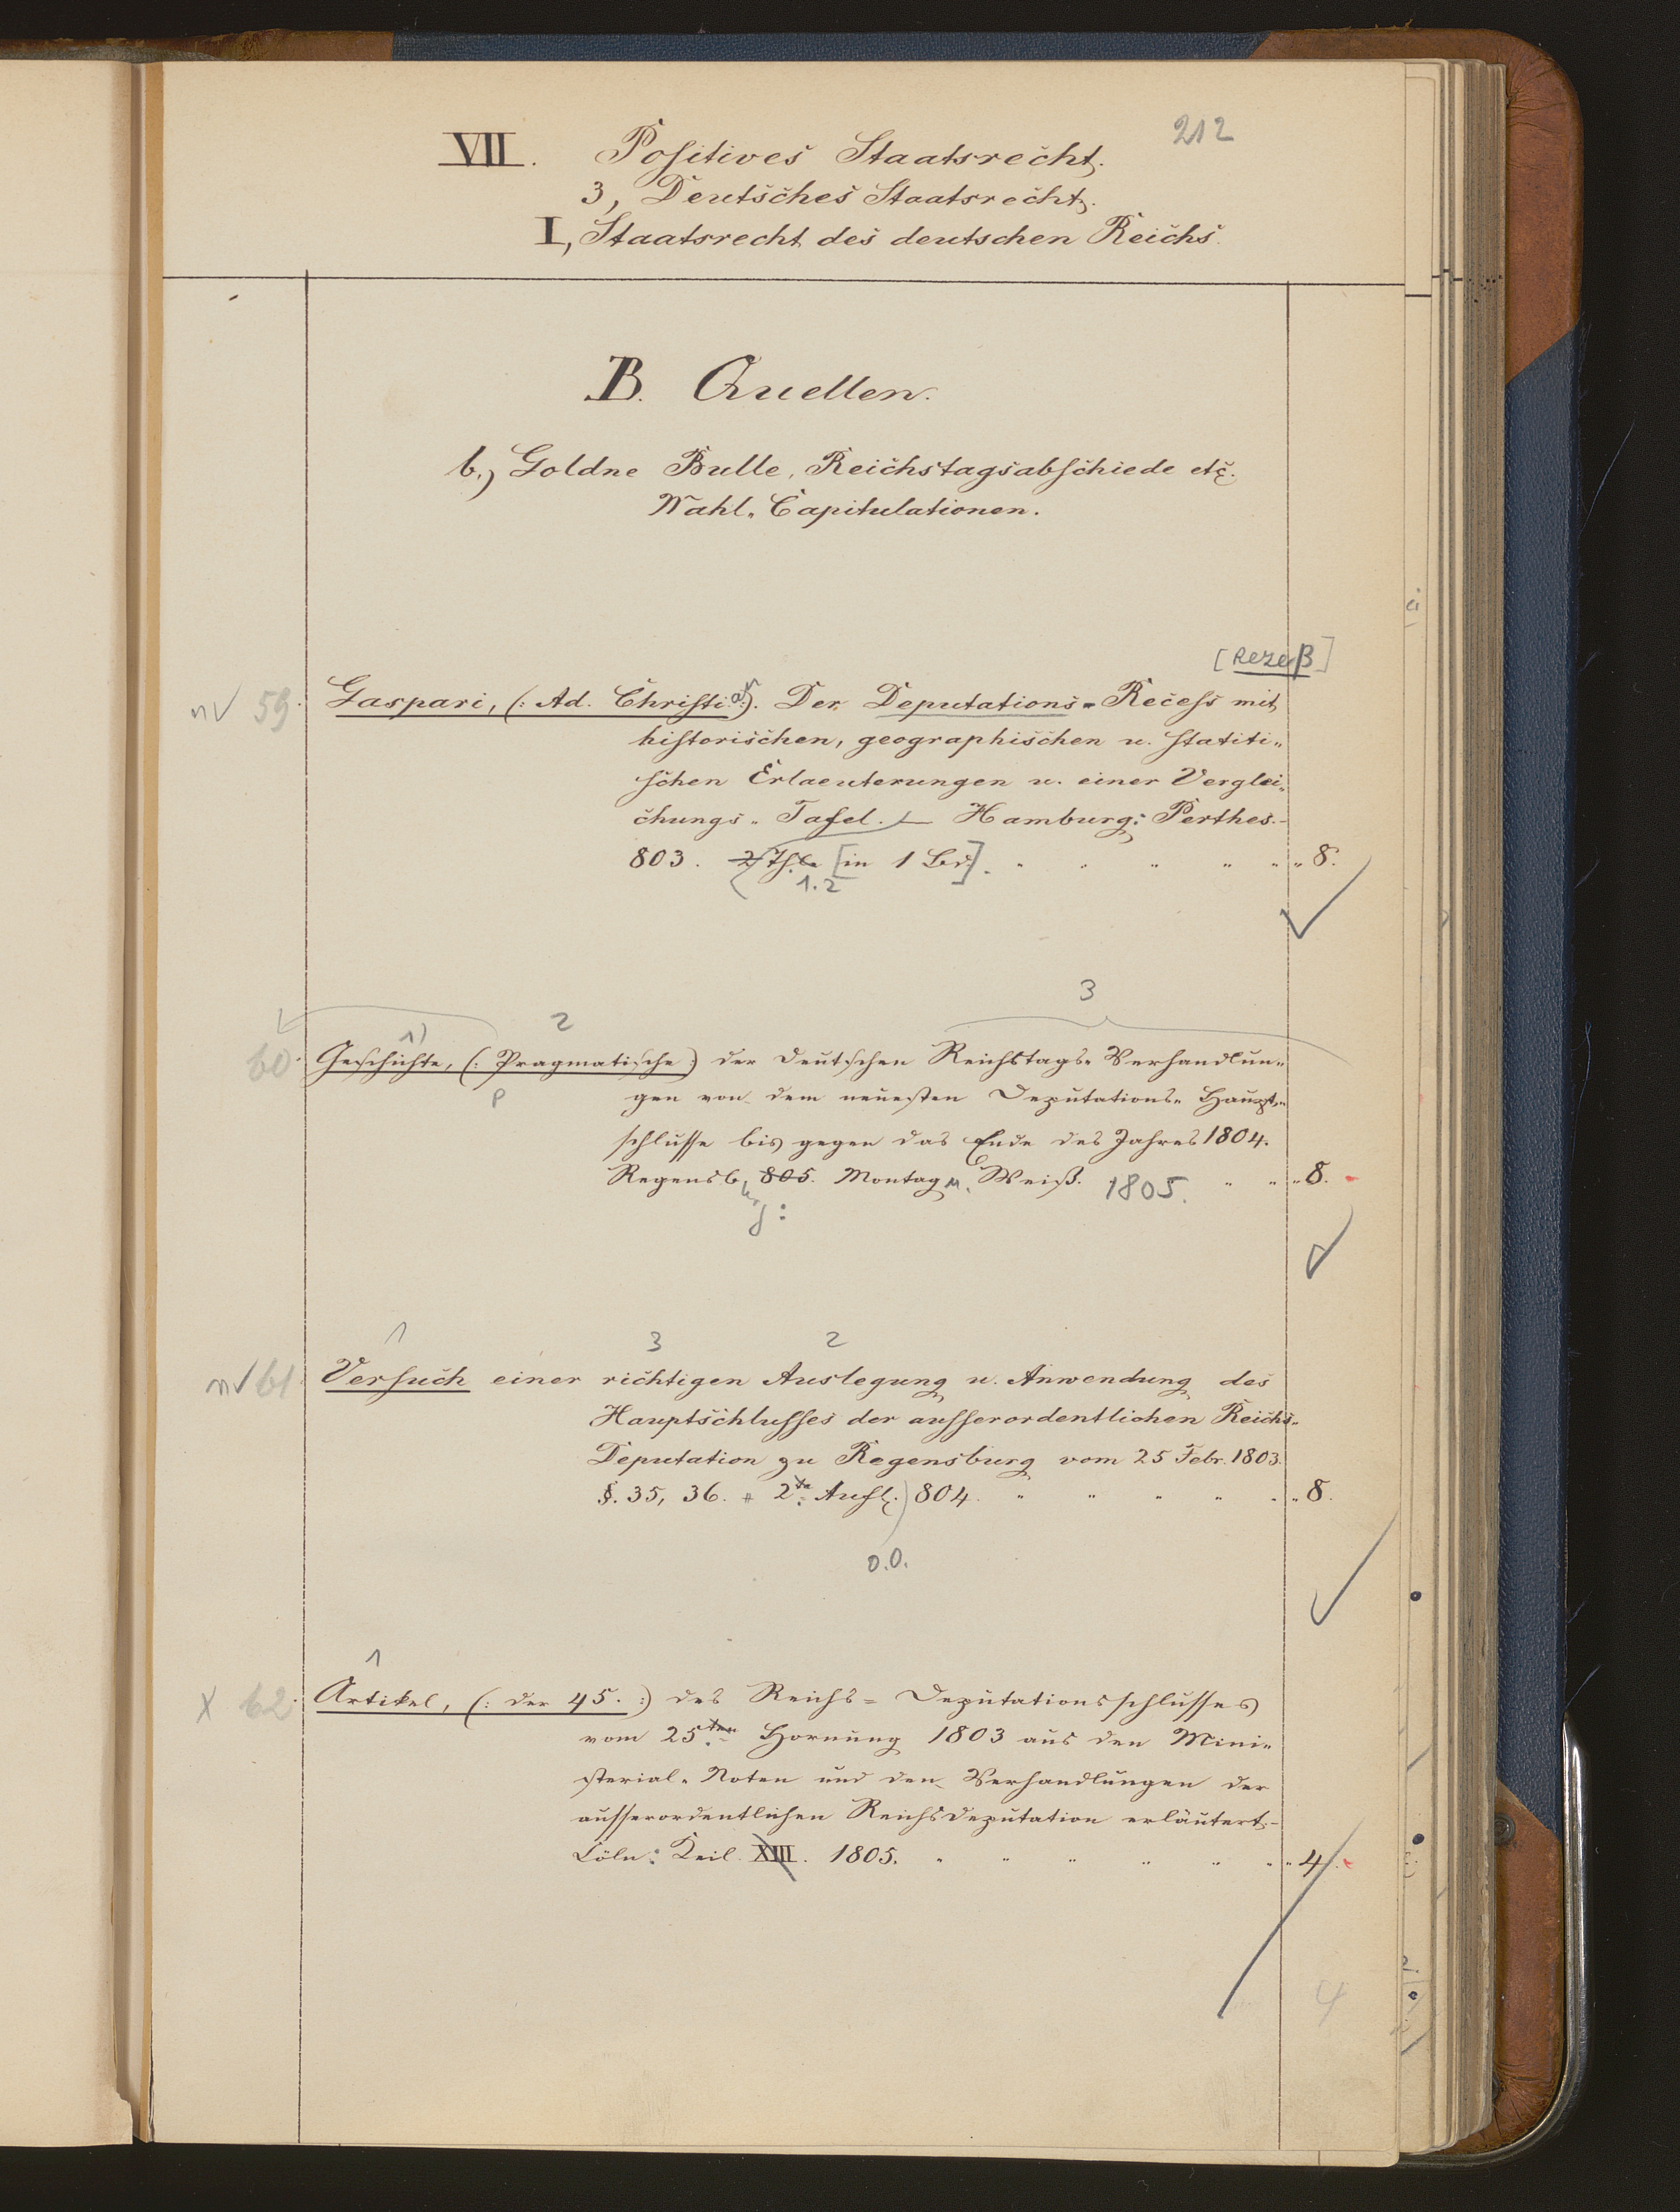 212
VII. Positives Staatsrecht.
3, Deutsches Staatsrecht.
I, Staatsrecht des deutschen Reichs.
B. Quellen.
b.) Goldne Bulle, Reichstagsabschiede etc.
Wahl-Capitulationen.
[Rezeß]
59. Gaspari, (: Ad. Christian :). Der Deputations-Recess mit
historischen, geographischen u. statiti-
schen Erlaeuterungen u. einer Verglei-
chungs-Tafel. – Hamburg: Perthes.-
803. 2 Thle [in 1 Bd]. " " " " " 8.
1.2
3
1) 2
60. Geschichte, (: Pragmatische :) der deutschen Reichstags-Verhandlun-
P gen von dem neuesten Deputations-Haupt-
schlusse bis gegen das Ende des Jahres 1804.
Regensb. 805. Montag u. Weiß. 1805. " " " 8.
urg:
1 3 2
61. Versuch einer richtigen Auslegung u. Anwendung des
Hauptschlusses der ausserordentlichen Reichs-
Deputation zu Regensburg vom 25 Febr. 1803.
§. 35, 36. 2te Aufl. 804. " " " " " 8.
o.O.
1
X 62. Artikel, (: der 45. :) des Reichs-Deputationsschlusses
vom 25ten Hornung 1803 aus den Mini-
sterial-Noten und den Verhandlungen der
ausserordentlichen Reichsdeputation erläutert.-
Cöln: Keil. XIII. 1805. " " " " " " 4.
4